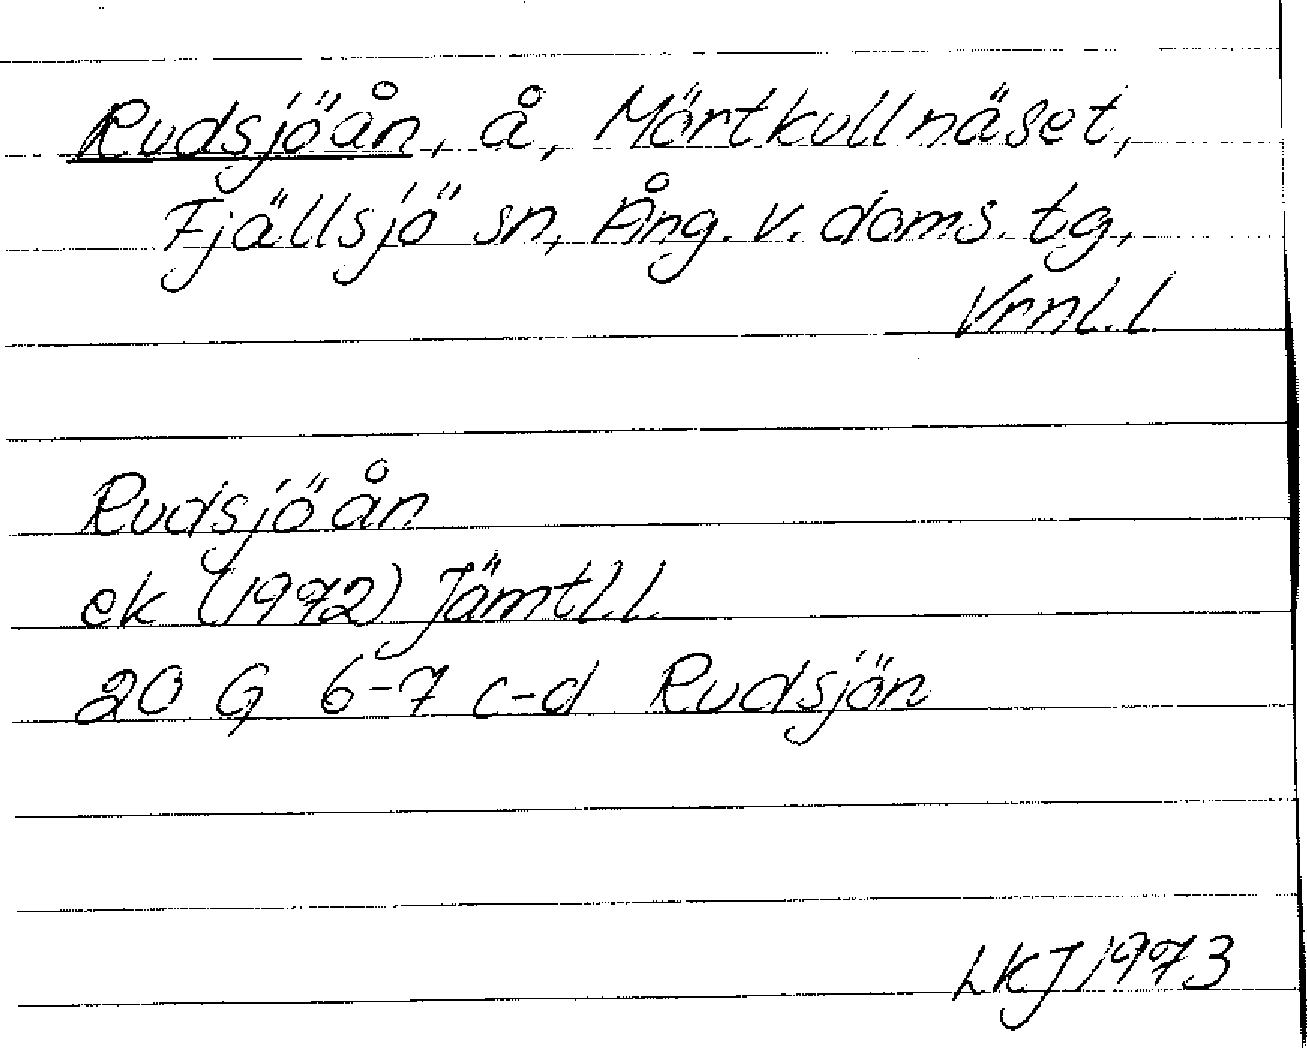 Rudsjöån, å, Mörtkullnäset,
Fjällsjö sn, Ång. v. doms. tg,
Vrnl. l
Rudsjöån
ek (1972) Jämtl. l.
20 G 6-7 c-d Rudsjön
LKJ 1973